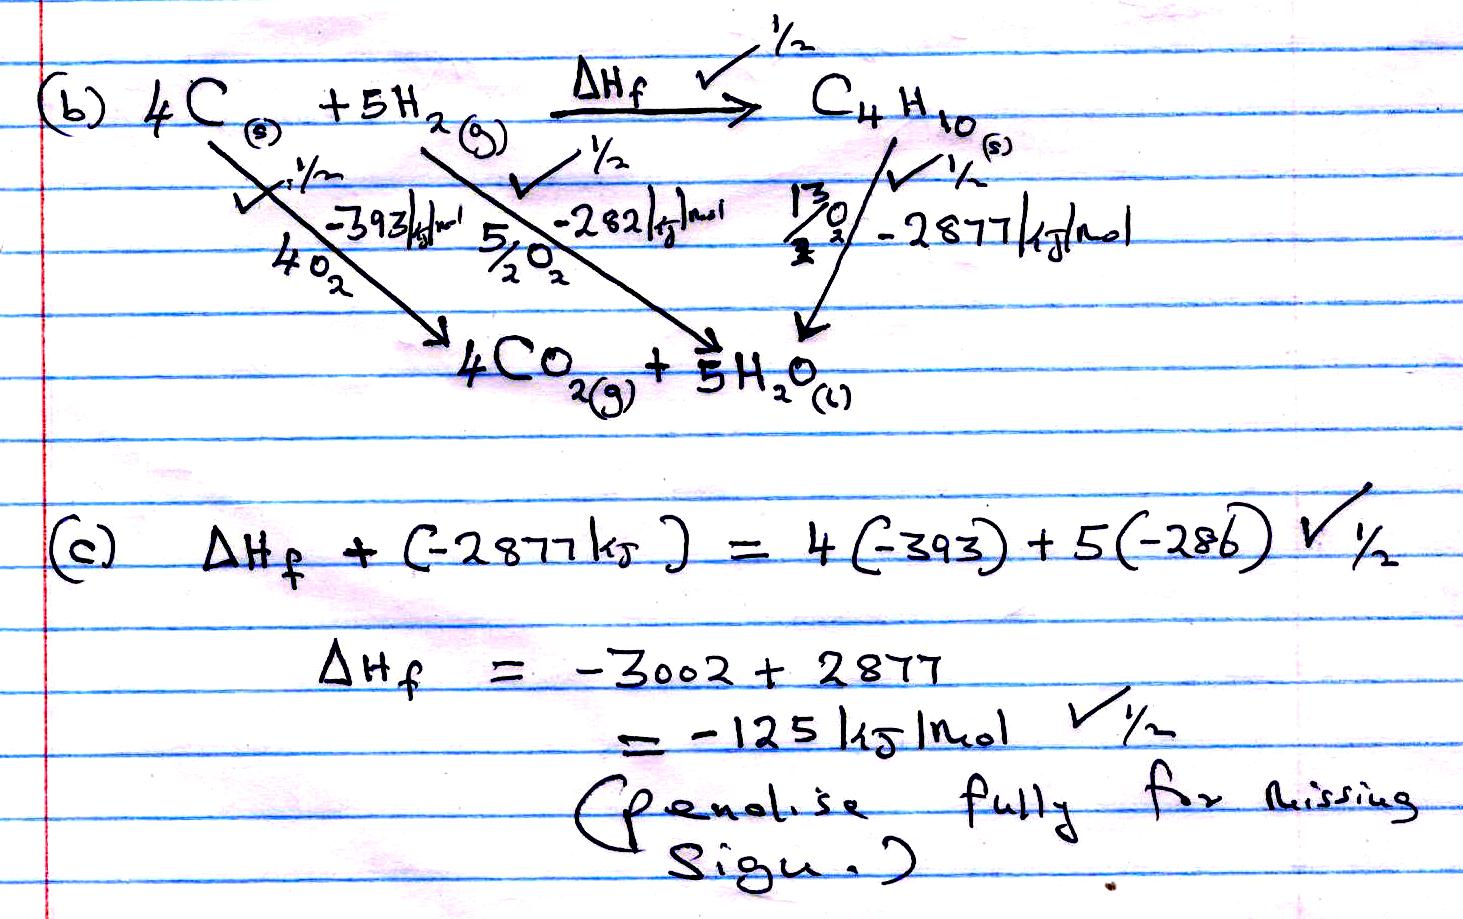 ✓ ½
(b) 4C(s) + 5H₂(g) ΔHf → C₄H₁₀(s)
✓ ½ ✓ ½ ✓ ½
-393kJ/mol -282kJ/mol 13/2 O₂ -2877kJ/mol
4O₂ 5/2 O₂
4CO₂(g) + 5H₂O(l)
(c) ΔHf + (-2877kJ) = 4(-393) + 5(-286) ✓ ½
ΔHf = -3002 + 2877
= -125 kJ/mol ✓ ½
(penalise fully for missing
sign.)